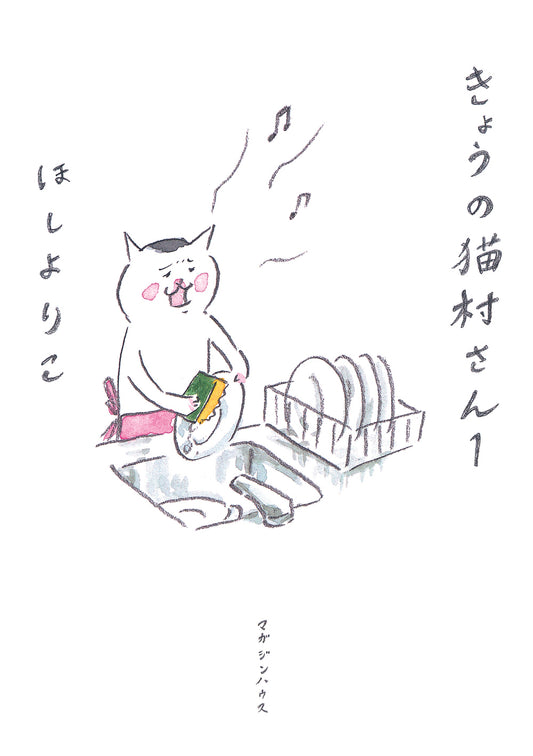 きょうの猫村さん1
ほしよりこ
マガジンハウス